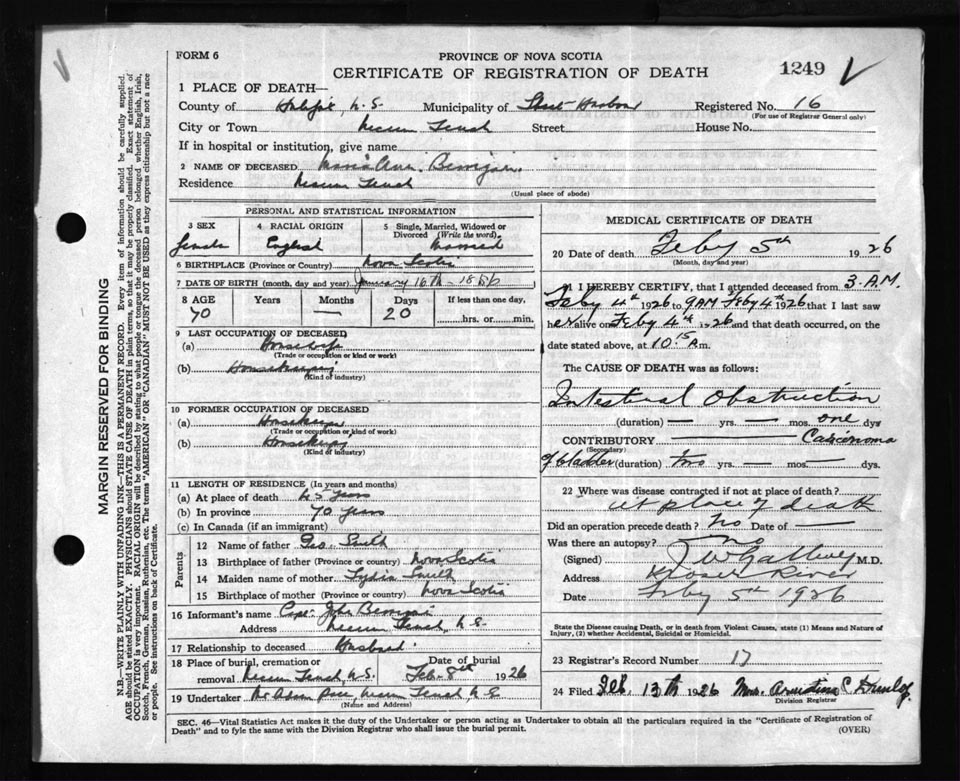 FORM 6
PROVINCE OF NOVA SCOTIA
CERTIFICATE OF REGISTRATION OF DEATH
1249
1 PLACE OF DEATH—
County of Halifax, N.S. Municipality of Registered No. 16
(For use of Registrar General only)
City or Town Necum Teuch Street House No.
If in hospital or institution, give name
2 NAME OF DECEASED Ann
Residence Necum Teuch
(Usual place of abode)
PERSONAL AND STATISTICAL INFORMATION
3 SEX 4 RACIAL ORIGIN 5 Single, Married, Widowed or Divorced (Write the word)
Female English Married
6 BIRTHPLACE (Province or Country) Nova Scotia
7 DATE OF BIRTH (month, day and year) January 16th - 1856
8 AGE Years Months Days If less than one day,
70 — 20 hrs. or min.
9 LAST OCCUPATION OF DECEASED
(a) Housewife
(Trade or occupation or kind or work)
(b) Housekeeping
(Kind of industry)
10 FORMER OCCUPATION OF DECEASED
(a)
(Trade or occupation or kind or work)
(b)
(Kind of industry)
11 LENGTH OF RESIDENCE (In years and months)
(a) At place of death 45 years
(b) In province 70 years
(c) In Canada (if an immigrant)
Parents
12 Name of father Geo. Smith
13 Birthplace of father (Province or country) Nova Scotia
14 Maiden name of mother Lydia Smith
15 Birthplace of mother (Province or country) Nova Scotia
16 Informant's name Capt. John
Address Necum Teuch, N.S.
17 Relationship to deceased Husband
18 Place of burial, cremation or Date of burial
removal Necum Teuch, N.S. Feb - 8th 1926
19 Undertaker Necum Teuch N.S.
(Name and Address)
MEDICAL CERTIFICATE OF DEATH
20 Date of death Feby 5th 1926
(Month, day and year)
21 I HEREBY CERTIFY, that I attended deceased from 3 A.M.
Feby 4th 1926 to 9 AM Feby 4th 1926 that I last saw
her alive on Feby 4th 1926 and that death occurred, on the
date stated above, at 10 15 A m.
The CAUSE OF DEATH was as follows:
Intestinal Obstruction
(duration) — yrs. — mos. one dys
CONTRIBUTORY Carcinoma
(Secondary)
of bladder (duration) two yrs. — mos. — dys.
22 Where was disease contracted if not at place of death?
at place of death
Did an operation precede death? No Date of —
Was there an autopsy? No
(Signed) M.D.
Address Moser River
Date Feby 5th 1926
State the Disease causing Death, or in death from Violent Causes, state (1) Means and Nature of
Injury, (2) whether Accidental, Suicidal or Homicidal.
23 Registrar's Record Number 17
24 Filed Feb. 13th 1926 Mrs. C Dunlop.
Division Registrar
SEC. 46—Vital Statistics Act makes it the duty of the Undertaker or person acting as Undertaker to obtain all the particulars required in the "Certificate of Registration of
Death" and to fyle the same with the Division Registrar who shall issue the burial permit.
(OVER)
MARGIN RESERVED FOR BINDING
N.B.—WRITE PLAINLY WITH UNFADING INK—THIS IS A PERMANENT RECORD. Every item of information should be carefully supplied.
AGE should be stated EXACTLY. PHYSICIANS should STATE CAUSE OF DEATH in plain terms, so that it may be properly classified. Exact statement of
OCCUPATION is very important. RACIAL ORIGIN will be described by stating to what people or tongue the deceased person belonged, whether English, Irish,
Scotch, French, German, Russian, Ruthenian, etc. The terms "AMERICAN" OR "CANADIAN" MUST NOT BE USED as they express citizenship but not a race
or people. See instructions on back of Certificate.